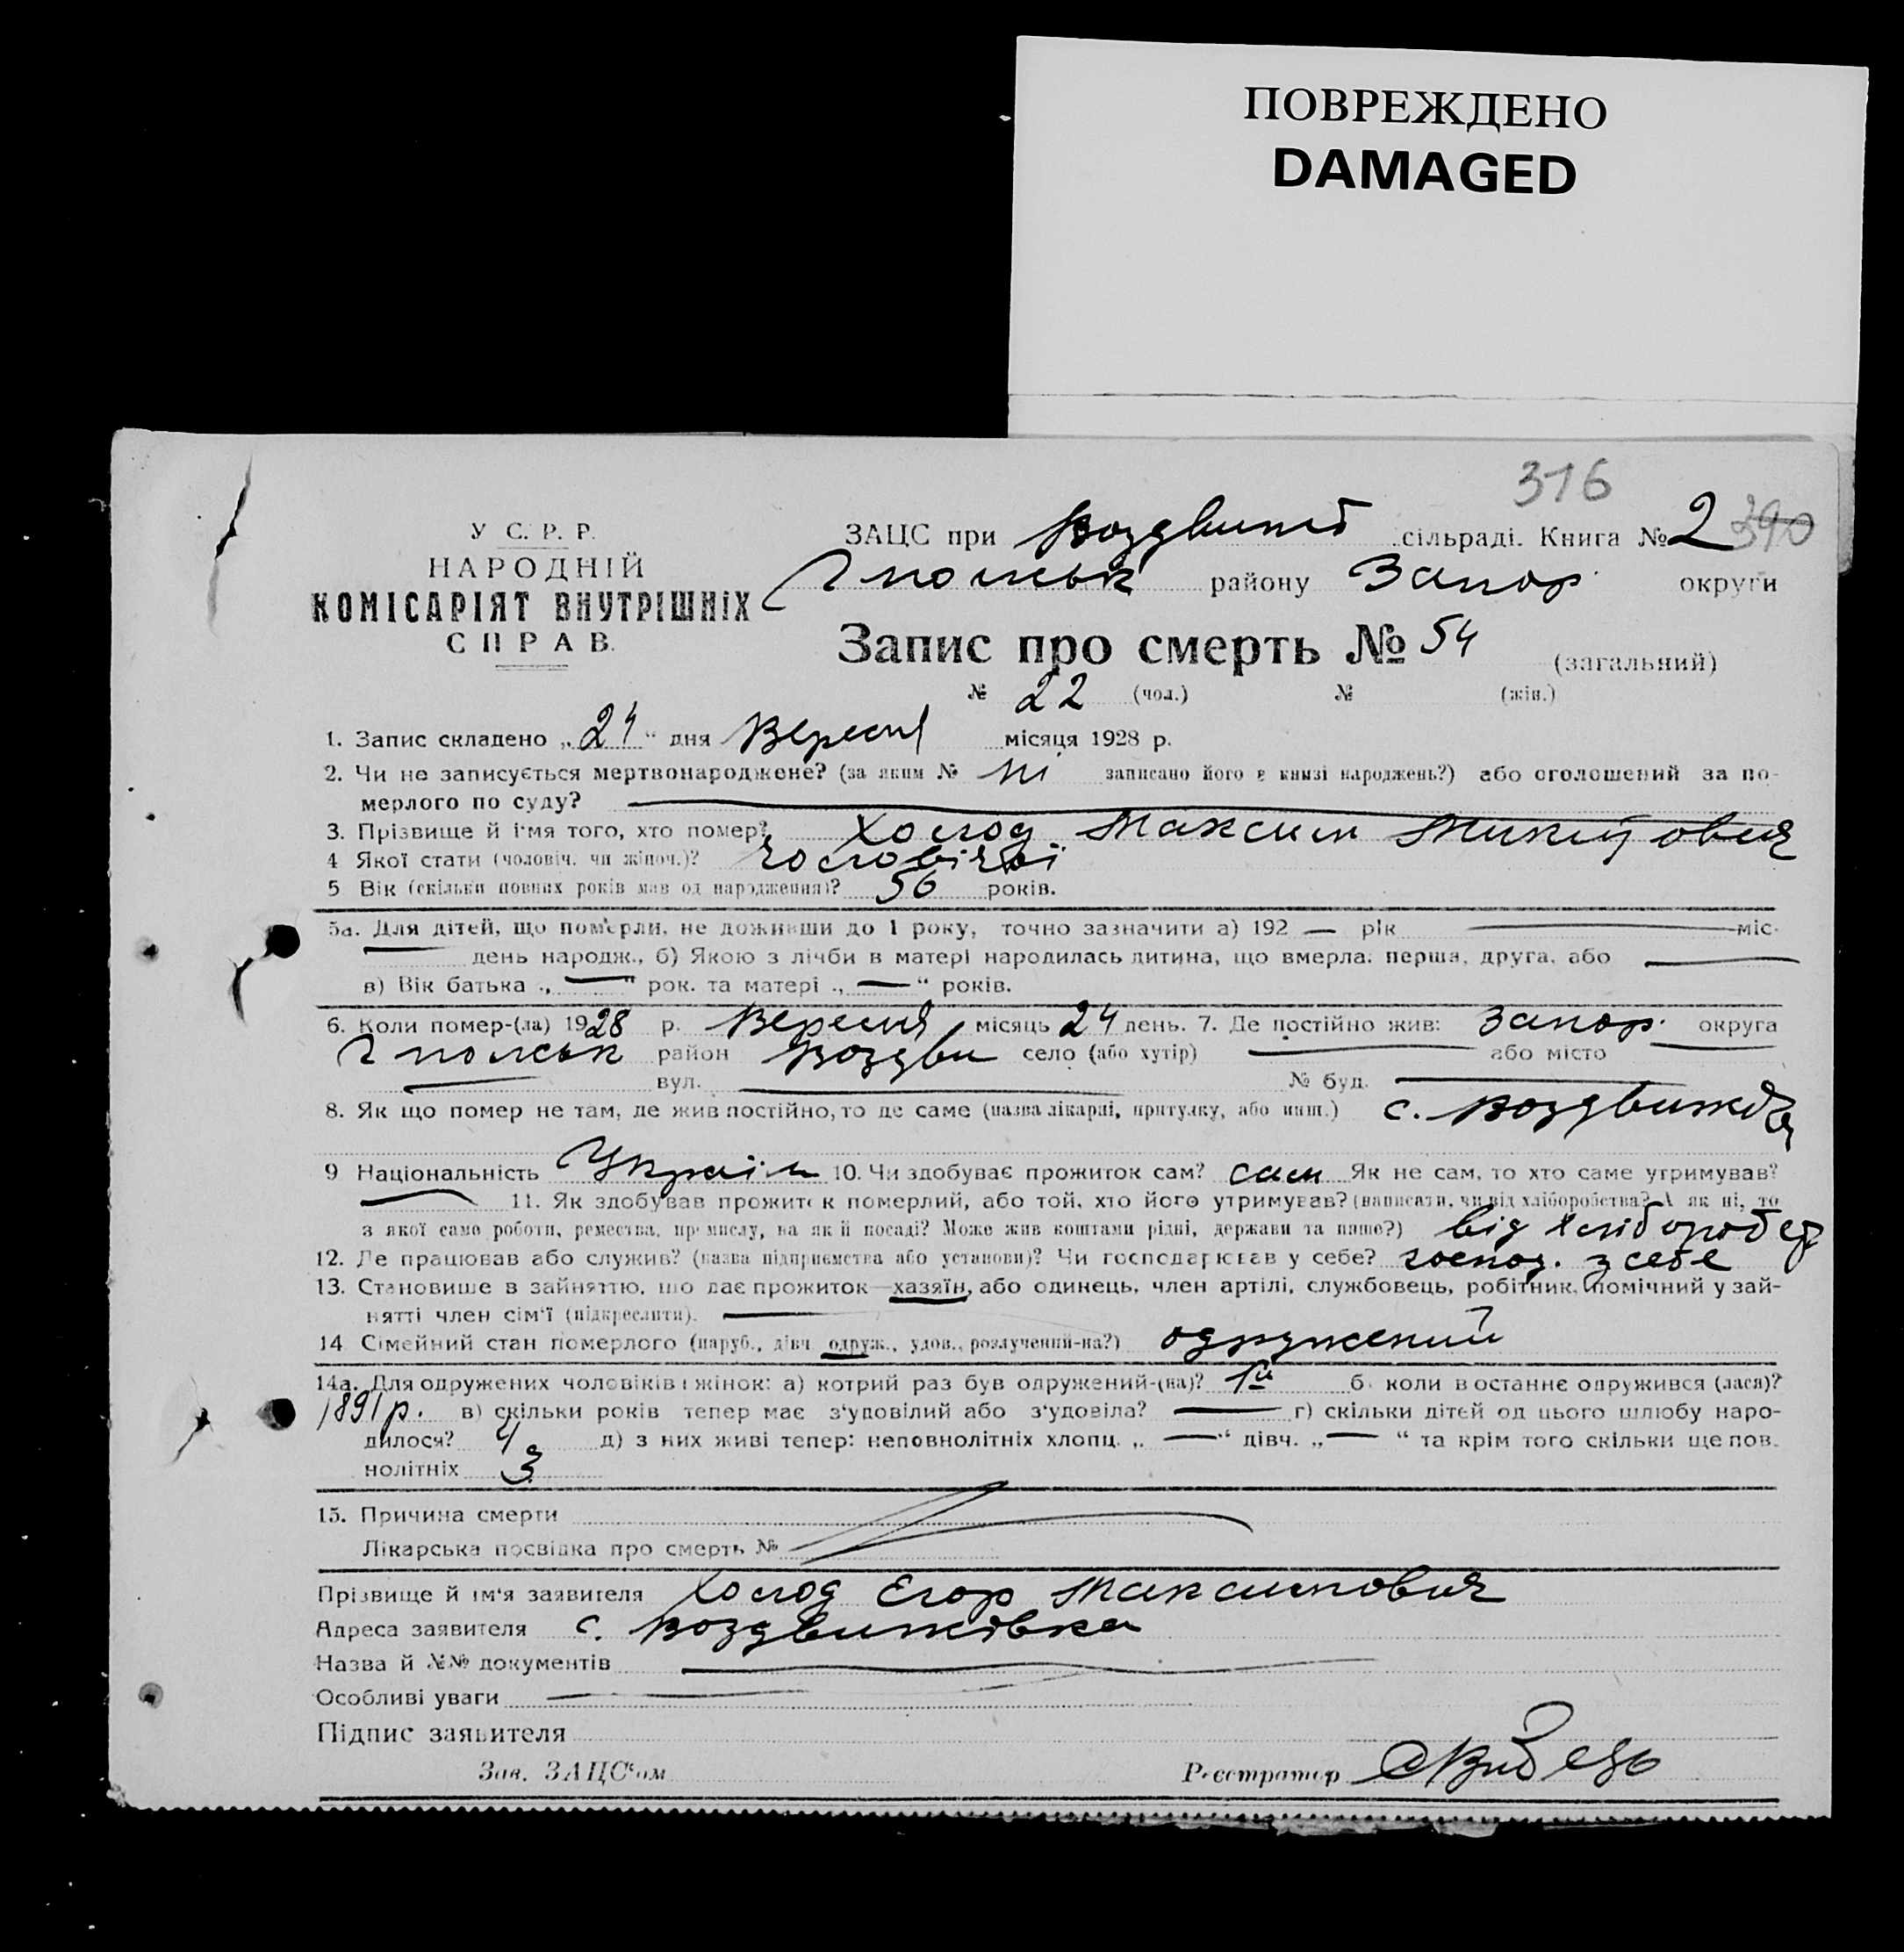 ПОВРЕЖДЕНО
DAMAGED
316
У С. Р. Р.
НАРОДНІЙ
КОМІСАРІЯТ ВНУТРІШНІХ
СПРАВ.
ЗАЦС при Воздвижів сільраді. Книга № 2 390
Гполськ району Запор. округи
Запис про смерть № 54 (загальний)
№ 22 (чол.) № (жін.)
1. Запис складено „24“ дня Вересня місяця 1928 р.
2. Чи не записується мертвонароджене? (за яким № ні записано його в книзі народжень?) або оголошений за по-
мерлого по суду? —
3. Прізвище й ім'я того, хто помер? Холод Максим Микитович
4 Якої стати (чоловіч. чи жіноч.)? чоловічої
5 Вік (скільки повних років мав од народження)? 56 років.
5а. Для дітей, що померли, не доживши до 1 року, точно зазначити а) 192 — рік — міс.
— день народж., б) Якою з лічби в матері народилась дитина, що вмерла: перша, друга, або —
в) Вік батька „—“ рок. та матері „—“ років.
6. Коли помер-(ла) 1928 р. Вересня місяць 24 день. 7. Де постійно жив: Запор. округа
Гполськ район Воздви село (або хутір) — або місто —
— вул. — № буд. —
8. Як що помер не там, де жив постійно, то де саме (назва лікарні, притулку, або инш.) с. Воздвижів
9 Національність Україн 10. Чи здобуває прожиток сам? сам Як не сам, то хто саме утримував?
— 11. Як здобував прожиток померлий, або той, хто його утримував? (написати, чи від хліборобства? А як ні, то
з якої само роботи, ремества, промислу, на якій посаді? Може жив коштами рідні, держави та инше?) від хлібороб
12. Де працював або служив? (назва підприємства або установи)? Чи господарював у себе? господ. у себе
13. Становище в зайняттю, що дає прожиток—хазяїн, або одинець, член артілі, службовець, робітник, помічний у зай-
нятті член сім'ї (підкреслити). —
14 Сімейний стан померлого (паруб., дівч. одруж., удов., розлучений-на?) одружений
14а. Для одружених чоловіків і жінок: а) котрий раз був одружений-(на)? 1й б. коли в останнє одружився (лася)?
1891 р. в) скільки років тепер має з'удовілий або з'удовіла? — г) скільки дітей од цього шлюбу наро-
дилося? 4 д) з них живі тепер: неповнолітніх хлопц. „—“ дівч. „—“ та крім того скільки ще пов-
нолітніх 3
15. Причина смерти
Лікарська посвідка про смерть №
Прізвище й ім'я заявителя Холод Єгор Максимович
Адреса заявителя с. Воздвижівка
Назва й №№ документів —
Особливі уваги —
Підпис заявителя
Зав. ЗАЦС'ом Реєстратор